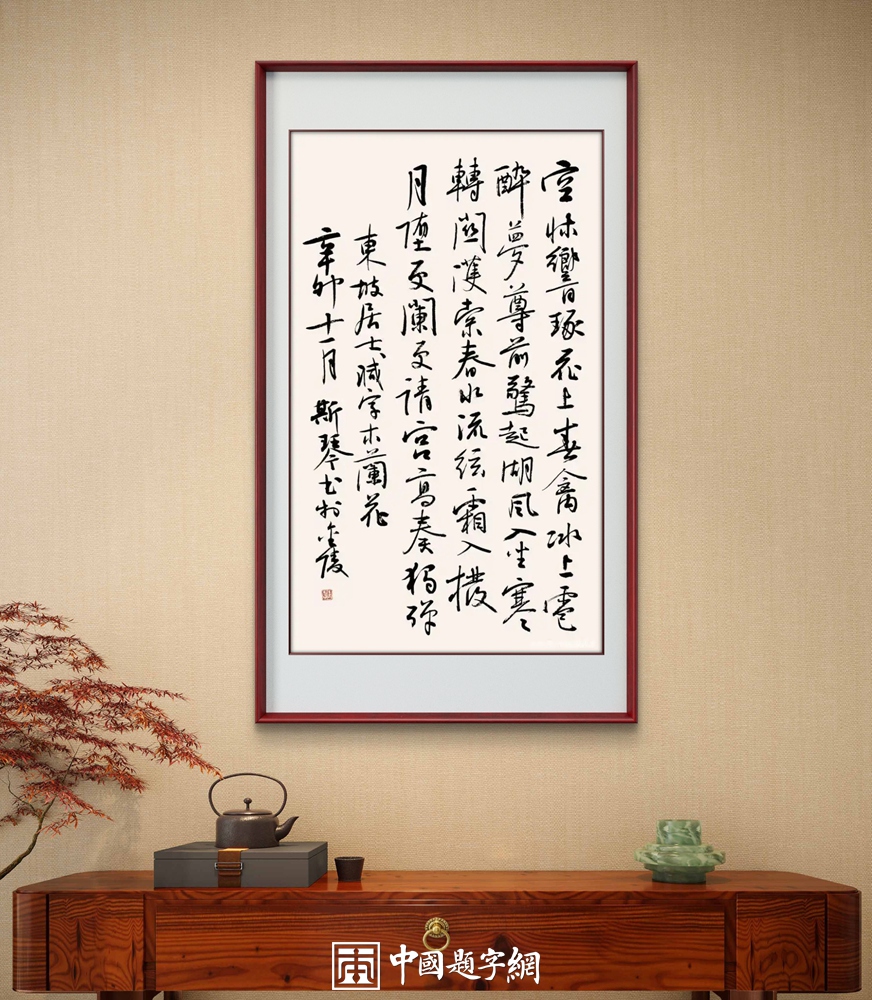 空牀響琢花上春禽冰上雹
醉夢尊前驚起湖風入坐寒
轉關濩索春水流弦霜入撥
月堕更闌更請宮高奏獨彈
東坡居士減字木蘭花
辛卯十一月斯琴书於金陵
中國題字網